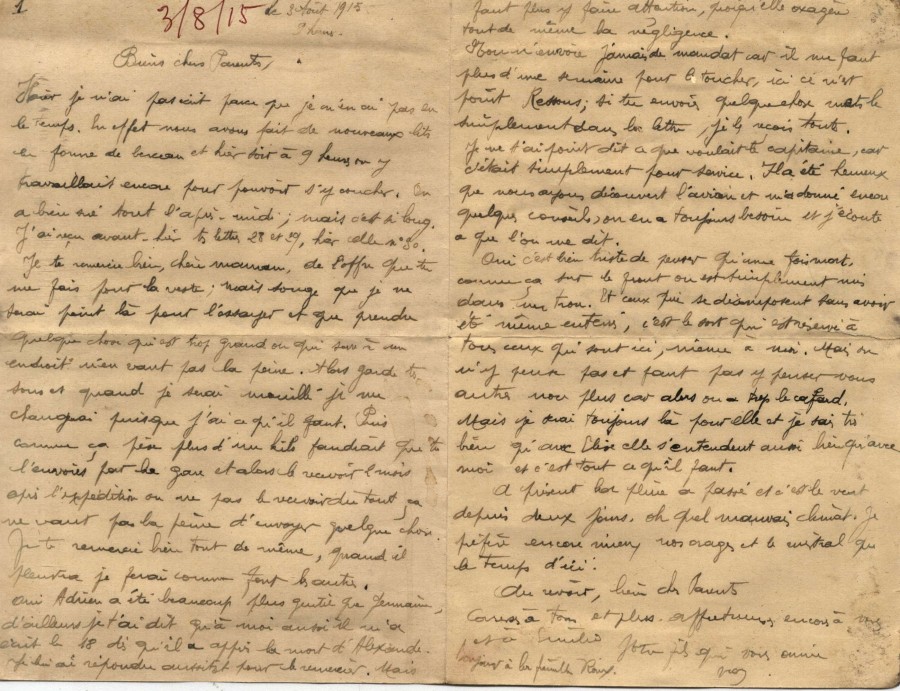 1
3/8/15
le 3 Août 1915
9 heures.
Biens chers Parents,
Hier je n'ai pas écrit parce que je n'en ai pas eu
le temps. En effet nous avons fait de nouveaux lits
en forme de berceau et hier soir à 9 heures on y
travaillait encore pour pouvoir s'y coucher. On
a bien sué tout l'après-midi ; mais c'est si long.
J'ai reçu avant-hier tes lettres 28 et 29, hier celle n° 30.
Je te remercie bien, chère maman, de l'offre que tu
me fais pour la veste ; mais songe que je ne
serai point là pour l'essayer et que prendre
quelque chose qui est trop grand ou qui serre à un
endroit n'en vaut pas la peine. Alors garde tes
sous et quand je serai mouillé je me
changerai puisque j'ai ce qu'il faut. Puis
comme ça pèse plus d'un kilo faudrait que tu
l'envoies par la gare et alors le recevoir 1 mois
après l'expédition ou ne pas le recevoir du tout, ça
ne vaut pas la peine d'envoyer quelque chose.
Je te remercie bien tout de même, quand il
pleuvra je ferai comme font les autres.
Oui Adrien a été beaucoup plus gentil que Germain,
d'ailleurs je t'ai dit qu'à moi aussi il m'a
écrit le 18 dès qu'il a appris la mort d'Alexandre
Je lui ai répondu aussitôt pour le remercier. Mais
faut plus y faire attention, puisqu'elle exagère
tout de même la négligence.
Non n'envoie jamais de mandat car il me faut
plus d'une semaine pour le toucher, ici ce n'est
point Ressons ; si tu envois quelque chose mets le
simplement dans les lettres, je les reçois toutes.
Je ne t'ai point dit ce que voulait le capitaine, car
c'était simplement pour service. Il a été heureux
que nous ayons découvert l'avion et m'a donné encore
quelques conseils, on en a toujours besoin et j'écoute
ce que l'on me dit.
Oui c'est bien triste de penser qu'une fois mort,
comme ça sur le front on est simplement mis
dans un trou. Et ceux qui se décomposent sans avoir
été même enterrés, c'est le sort qui est réservé à
tous ceux qui sont ici, même à moi. Mais on
n'y pense pas et faut pas y penser vous
autres non plus car alors on a trop le cafard.
Mais je serai toujours là pour elle et je sais très
bien qu'avec Elise elle s'entendent aussi bien qu'avec
moi et c'est tout ce qu'il faut.
A présent la pluie a passé et c'est le vent
depuis deux jours. Oh quel mauvais climat. Je
préfère encore mieux nos orages et le mistral que
le temps d'ici.
Au revoir, bien chers Parents
Caresses à Tom et plus affectueuses encore à vous
et à Emilie
Votre fils qui vous aime
bonjour à la famille Roux.